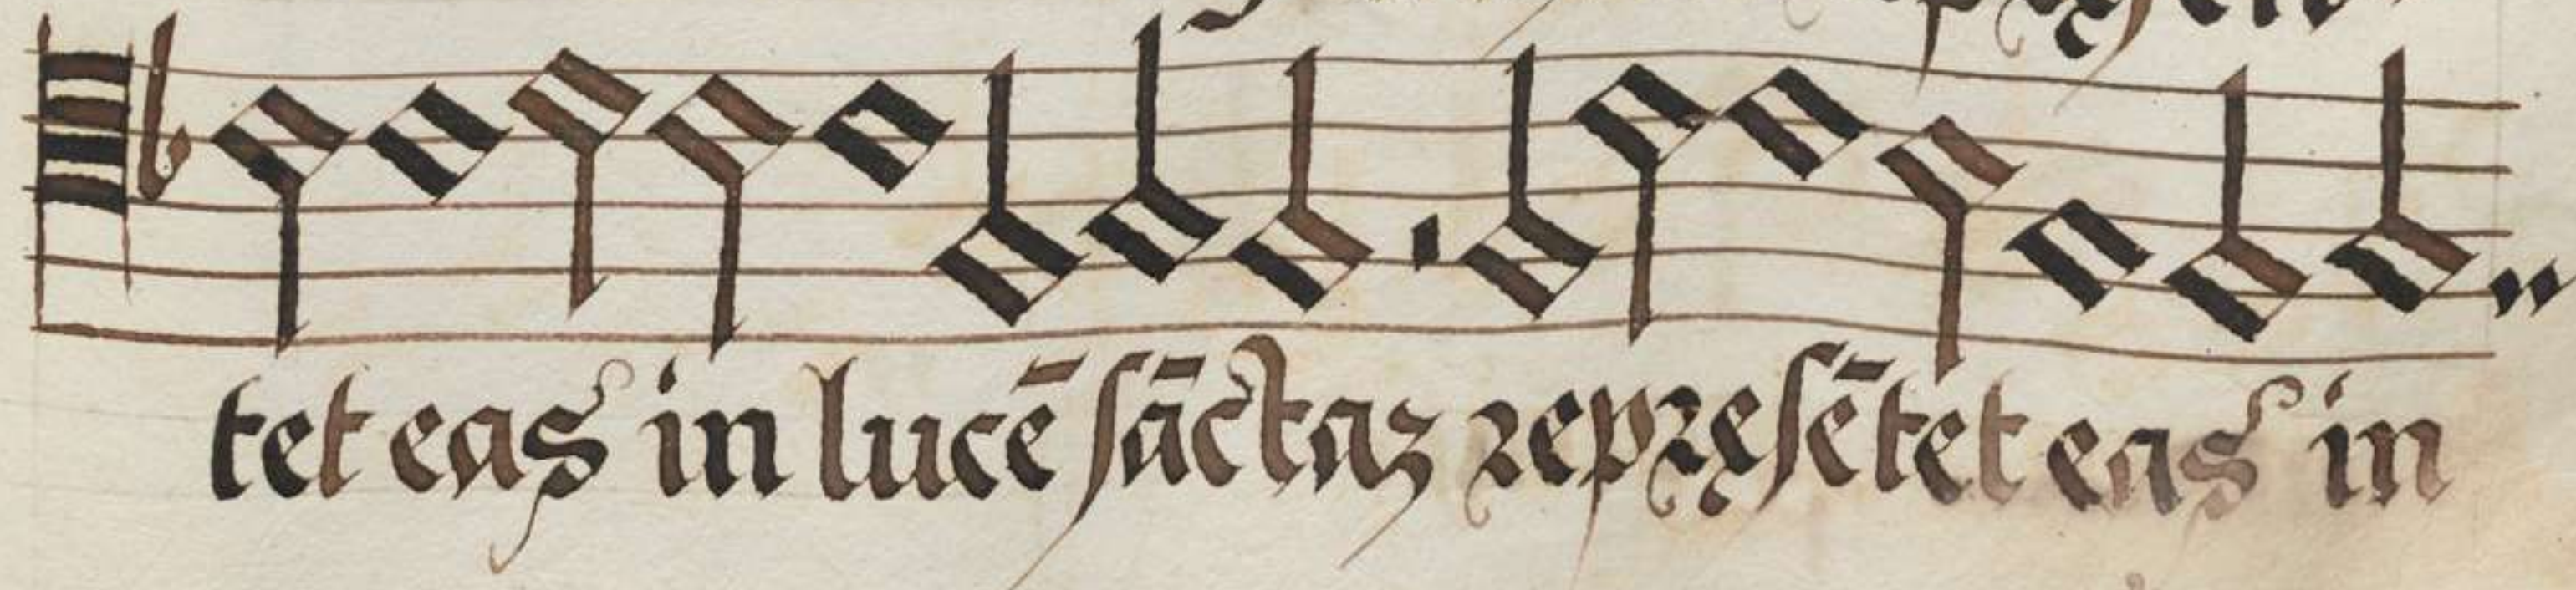 tet eas in lucē sāctaz repręsētet eas in